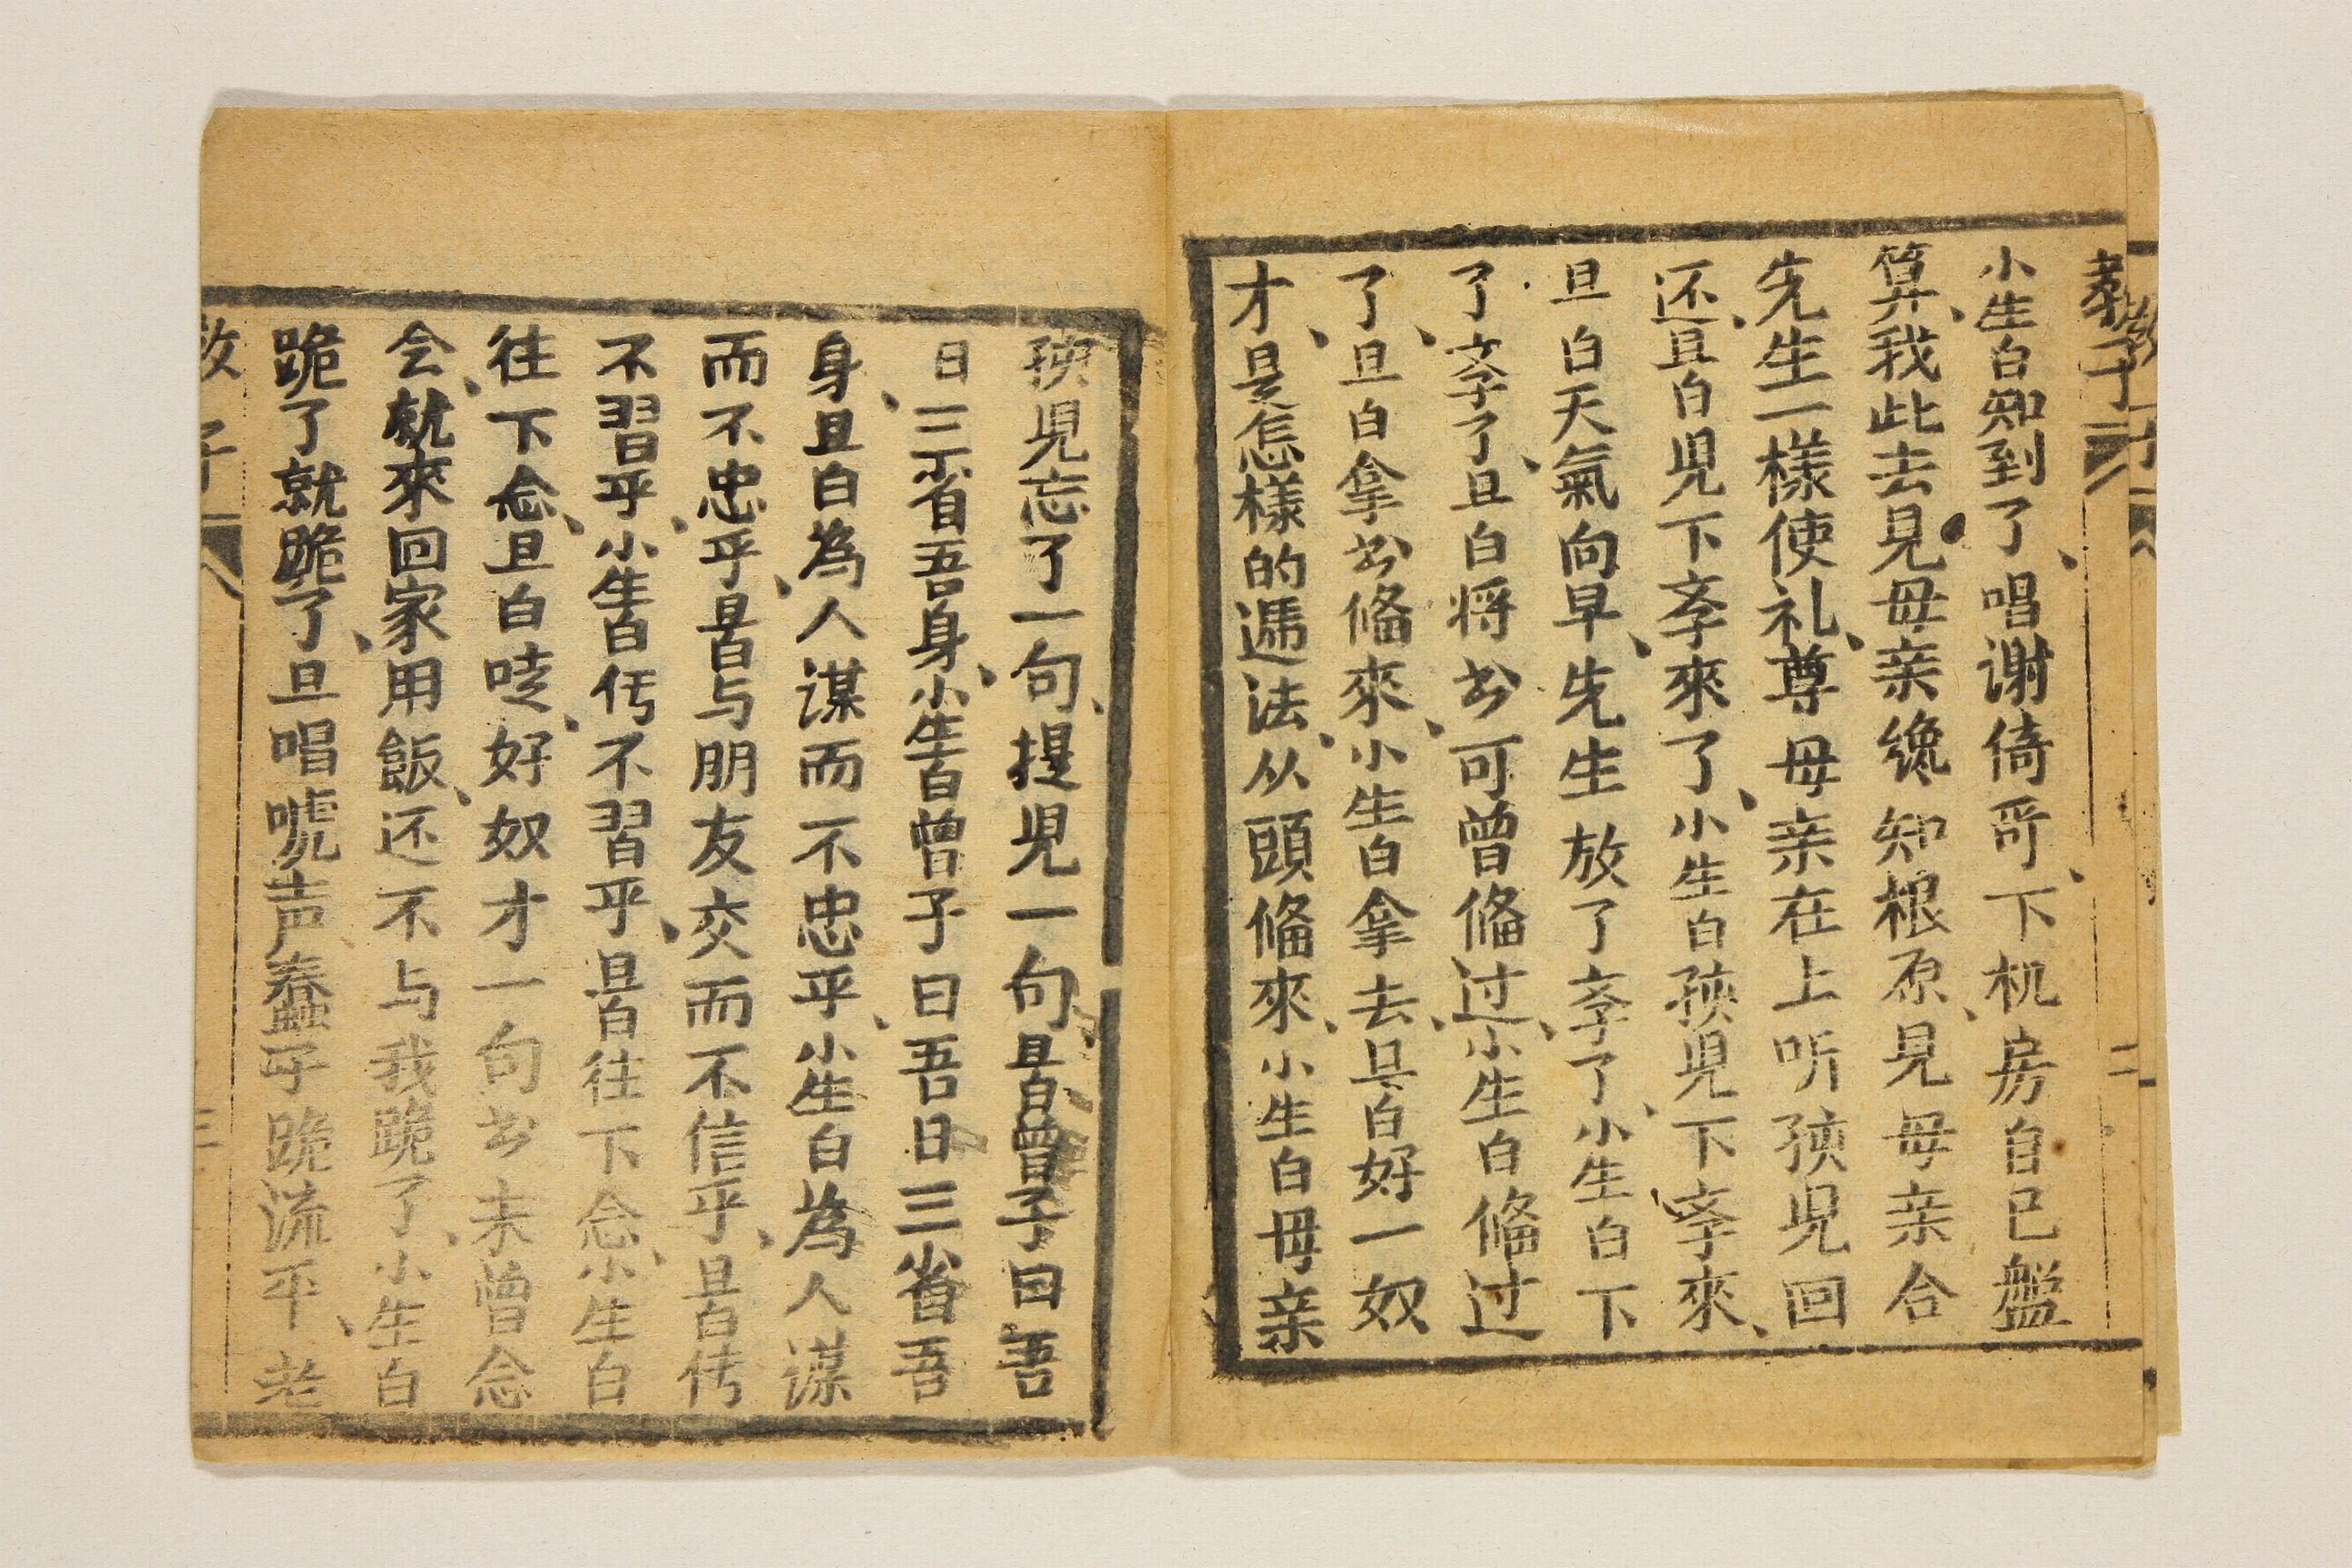 教子
二
小生白知到了唱谢倚哥下机房自已盤
算我此去見母亲纔知根原見母亲合
先生一樣使礼尊母亲在上听孩児回
还旦白児下斈來了小生白孩児下斈來
旦白天氣向早先生放了斈了小生白下
了斈了旦白将书可曾俻过小生白俻过
了旦白拿书俻來小生白拿去旦白好一奴
才是怎樣的遞法从頭俻來小生白母亲
孩児忘了一句提児一句旦白曾子曰吾
日三省吾身小生白曾子曰吾日三省吾
身旦白為人谋而不忠乎小生白為人谋
而不忠乎旦白与朋友交而不信乎旦白传
不習乎小生白传不習乎旦白往下念小生白
往下念旦白哇好奴才一句书未曾念
会就來回家用飯还不与我跪了小生白
跪了就跪了旦唱唬声蠢子跪流平老
教子
三